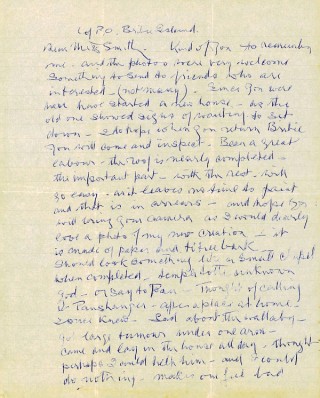 c/o P.O. Bribie Island.
Dear Miss Smith. Kind of you to remember
me - and the photos were very welcome
something to send to friends who are
interested - (not many) - Since you were
here have started a new house - as the
old one showed signs of wanting to sit
down - I do hope when you return Bribie
you will come and inspect - Been a great
labour - the roof is nearly completed -
the important part - with the rest - will
go easy - as it leaves no time to paint
and that is in arrears - and hope you
will bring your camera as I would dearly
love a photo of my new creation - it
is made of paper and ti tree bark
Should look something like a small
when completed - temple to the unknown
god - or say to Pan - thought of calling
it Panshanger - after a place at home -
I once knew - Sad about the wallaby -
large tumour under one arm -
came and lay in the house all day - thought
perhaps I could help him - and I could
do nothing - makes one feel bad